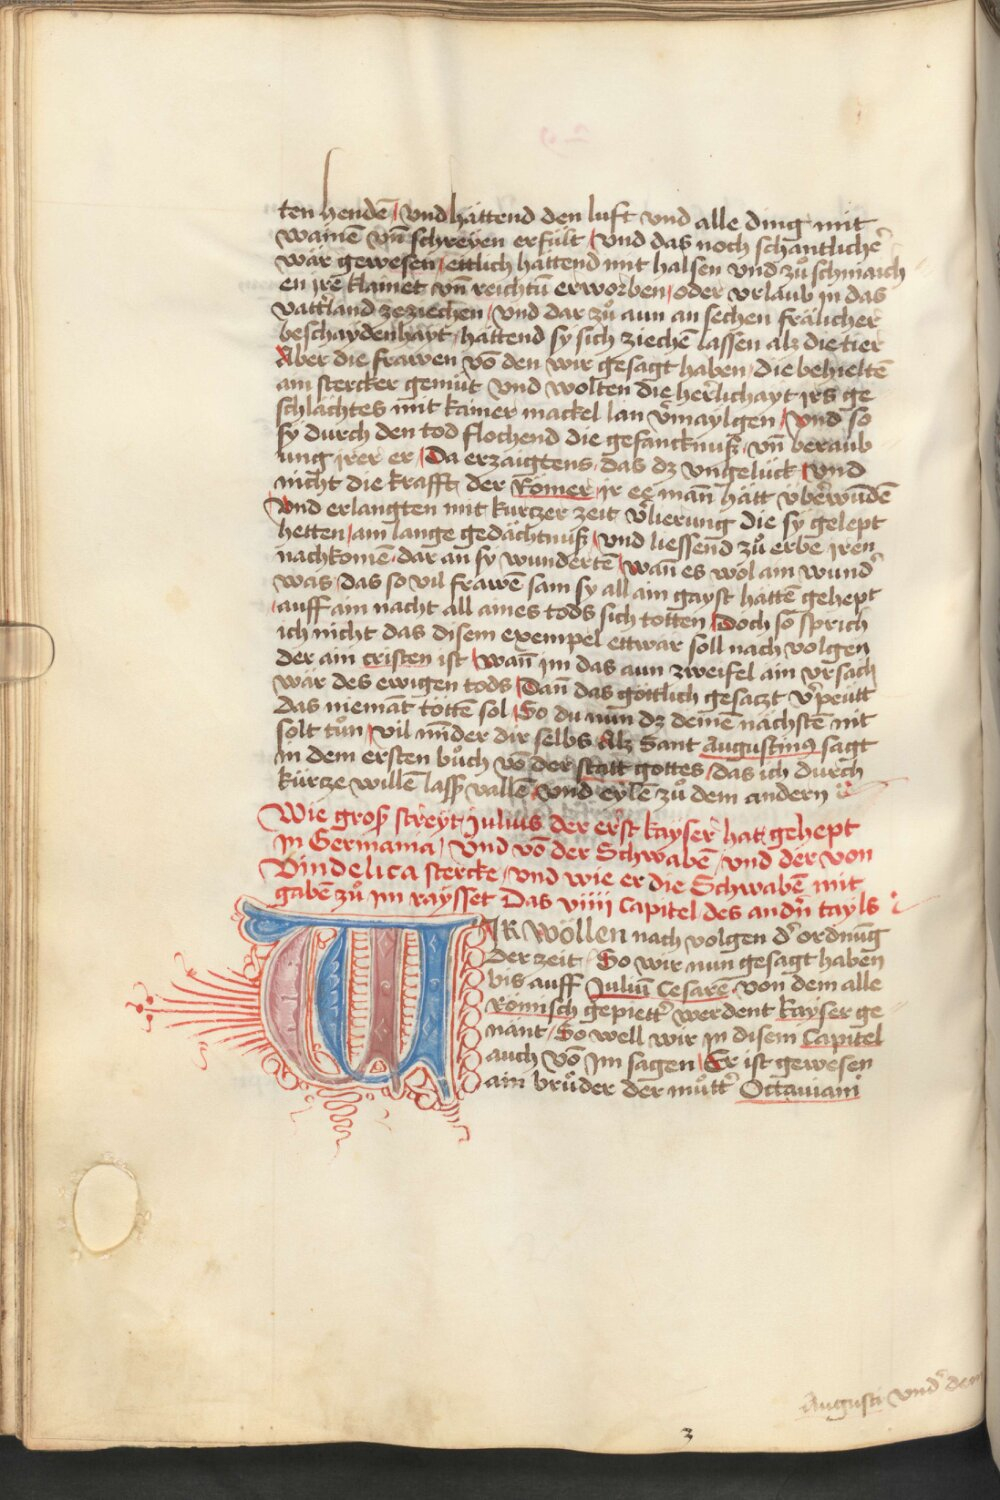 ten hendē / vnd hattend den luft vnd alle ding mit
wainē vn̄ schreyen erfült / vnd das noch schantlichē
wär gewesen / ettlich hattend mit halsen vnd zů schmaich
en jrē klainet vn̄ reichtū erworben / oder vrlaub in das
vattr̄land zeziechen / vnd dar zů aun an sechen frälicher
beschaydenhayt / hattend sy sich ziechē lassen als die tier
Aber die frawen vō den wir gesagt haben / die behieltē
ain stercker gemüt vnd wolten die herlichayt jrs ge
schlächtes mit kainer mackel lan v̄maylgen / vnd so
sy durch den tod flochend die gefancknuß / vn̄ beraub
ung jrer er / Da erzaigtens das dz vngelück / vnd
nicht die krafft der Römer jr ee man̄ hätt v̈berwūdē
vnd erlangten mit kurczer zeit v̄lierung die sy gelept
hetten / ain lange gedächtnuß / vnd liessend zů erbe jren
nachkomē / dar an sy wundertē / wan̄ es wol ain wundʾ
was / das so vil frawē sam sy all ain gayst hattē gehept
auff ain nacht all aines tods sich totten / Doch so sprich
ich nicht das disem exempel ettwar soll nach volgen
der ain cristen ist / wan̄ jm das aun zweifel ain vrsach
wär des ewigen tods / Dan̄ das göttlich gesaczt v̄peütt
das niemāt töttē sol / So du nun dz deinē nächstē nit
solt tůn / vil mīder dir selbs Als Sant Augustinꝰ sagt
in dem ersten bůch vō der statt gottes / das ich durch
kürcze willē lasß vallē / vnd eylē zů dem andern
Wie groß streyt Julius der erst kayser hat gehept
in Germania / vnd vō der Schwabē / vnd der von
Vindelica stercke / vnd wie er die Schwabē mit
gabē zů im raysset Das viiii Capitel des andn̄ tayls
WIR wöllen nach volgen dʾ ordnūg
der zeit / So wir nun gesagt haben
bis auff Juliū Cesarē / von dem alle
Römisch gepiettʾ werdent kayser ge
nant / So well wir in disem Capitel
auch vō im sagen / Er ist gewesen
ain brůder der můttʾ Octauiani
Augusti vndʾ
3